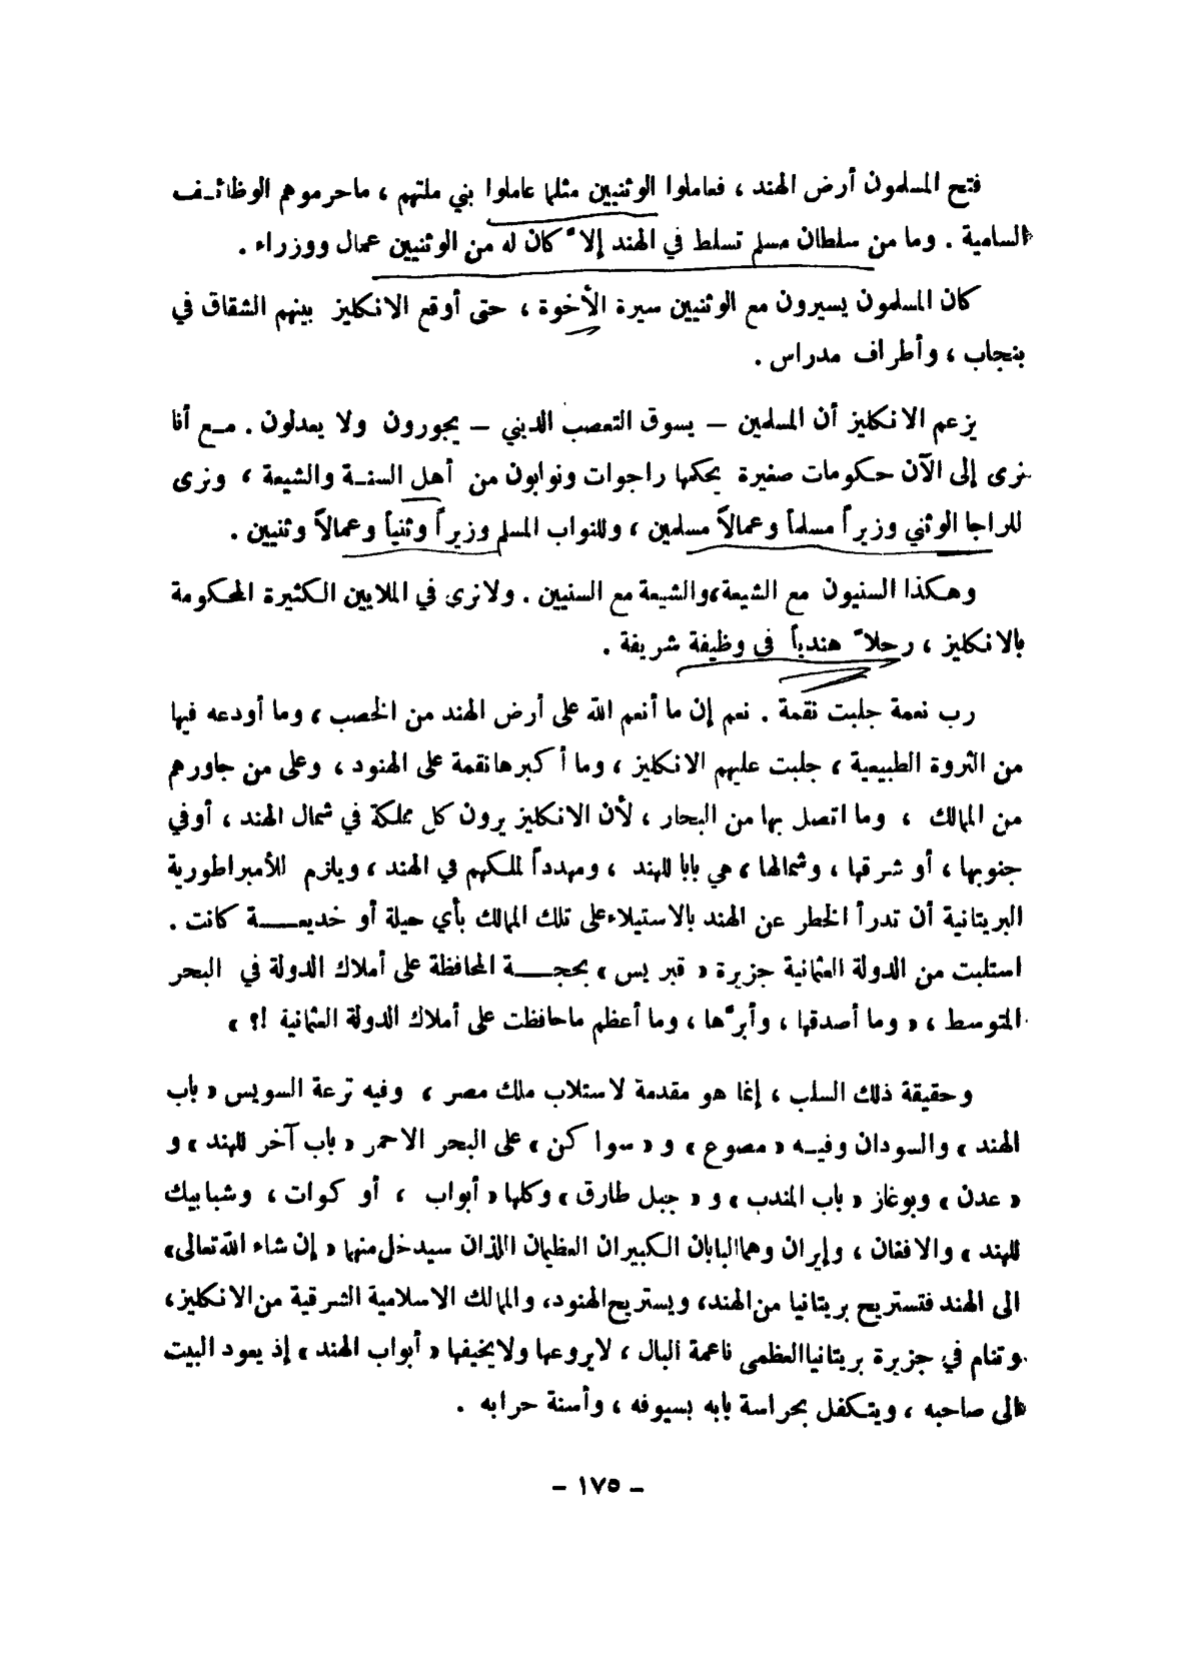 فتح المسلمون أرض الهند ، فعاملوا الوثنيين مثلما عاملوا بني ملتهم ، ماحرموهم الوظائـف
السامية . وما من سلطان مسلم تسلط في الهند إلاّ كان له من الوثنيين عمال ووزراء .
كان المسلمون يسيرون مع الوثنيين سيرة الأخوة ، حتى أوقع الانكليز بينهم الشقاق في
بنجاب ، وأطراف مدراس .
يزعم الانكليز أن المسلمين – يسوق التعصب الديني – يجورون ولا يعدلون . مـع أنا
نرى إلى الآن حكومات صغيرة يحكمها راجوات ونوابون من أهل السنـة والشيعة ، ونرى
للراجا الوثني وزيراً مسلماً وعمالاً مسلمين ، وللنواب المسلم وزيراً وثنياً وعمالاً وثنيين .
وهكذا السنيون مع الشيعة، والشيعة مع السنيين . ولانرى في الملايين الكثيرة المحكومة
بالانكليز ، رجلاً هندياً في وظيفة شريفة .
رب نعمة جلبت نقمة . نعم إن ما أنعم الله على أرض الهند من الخصب ، وما أودعه فيها
من الثروة الطبيعية ، جلبت عليهم الانكليز ، وما أكبرها نقمة على الهنود ، وعلى من جاورهم
من الممالك ، وما اتصل بها من البحار ، لأن الانكليز يرون كل مملكة في شمال الهند ، أوفي
جنوبها ، أو شرقها ، وشمالها ، هي بابا للهند ، ومهدداً لملكهم في الهند ، ويلزم للأمبراطورية
البريتانية أن تدرأ الخطر عن الهند بالاستيلاء على تلك الممالك بأي حيلة أو خديعـــة كانت .
استلبت من الدولة العثمانية جزيرة « قبريس » بحجـــة المحافظة على أملاك الدولة في البحر
المتوسط ، « وما أصدقها ، وأبرّها ، وما أعظم ماحافظت على أملاك الدولة العثمانية !؟ »
وحقيقة ذلك السلب ، إنما هو مقدمة لاستلاب ملك مصر ، وفيه ترعة السويس « باب
الهند » والسودان وفيـه « مصوع » و « سواكن » على البحر الاحمر « باب آخر للهند » و
« عدن » وبوغاز « باب المندب » و « جبل طارق » وكلها « أبواب ، أو كوات ، وشبابيك
للهند » والافغان ، وإيران وهماالبابان الكبيران العظيمان اللذان سيدخل منهما « إن شاء الله تعالى »
الى الهند فتستريح بريتانيا من الهند، ويستريح الهنود، والممالك الاسلامية الشرقية من الانكليز،
وتنام في جزيرة بريتانيا العظمى ناعمة البال ، لايروعها ولايخيفها « أبواب الهند » إذ يعود البيت
الى صاحبه ، ويتكفل بحراسة بابه بسيوفه ، وأسنة حرابه .
– ١٧٥ –